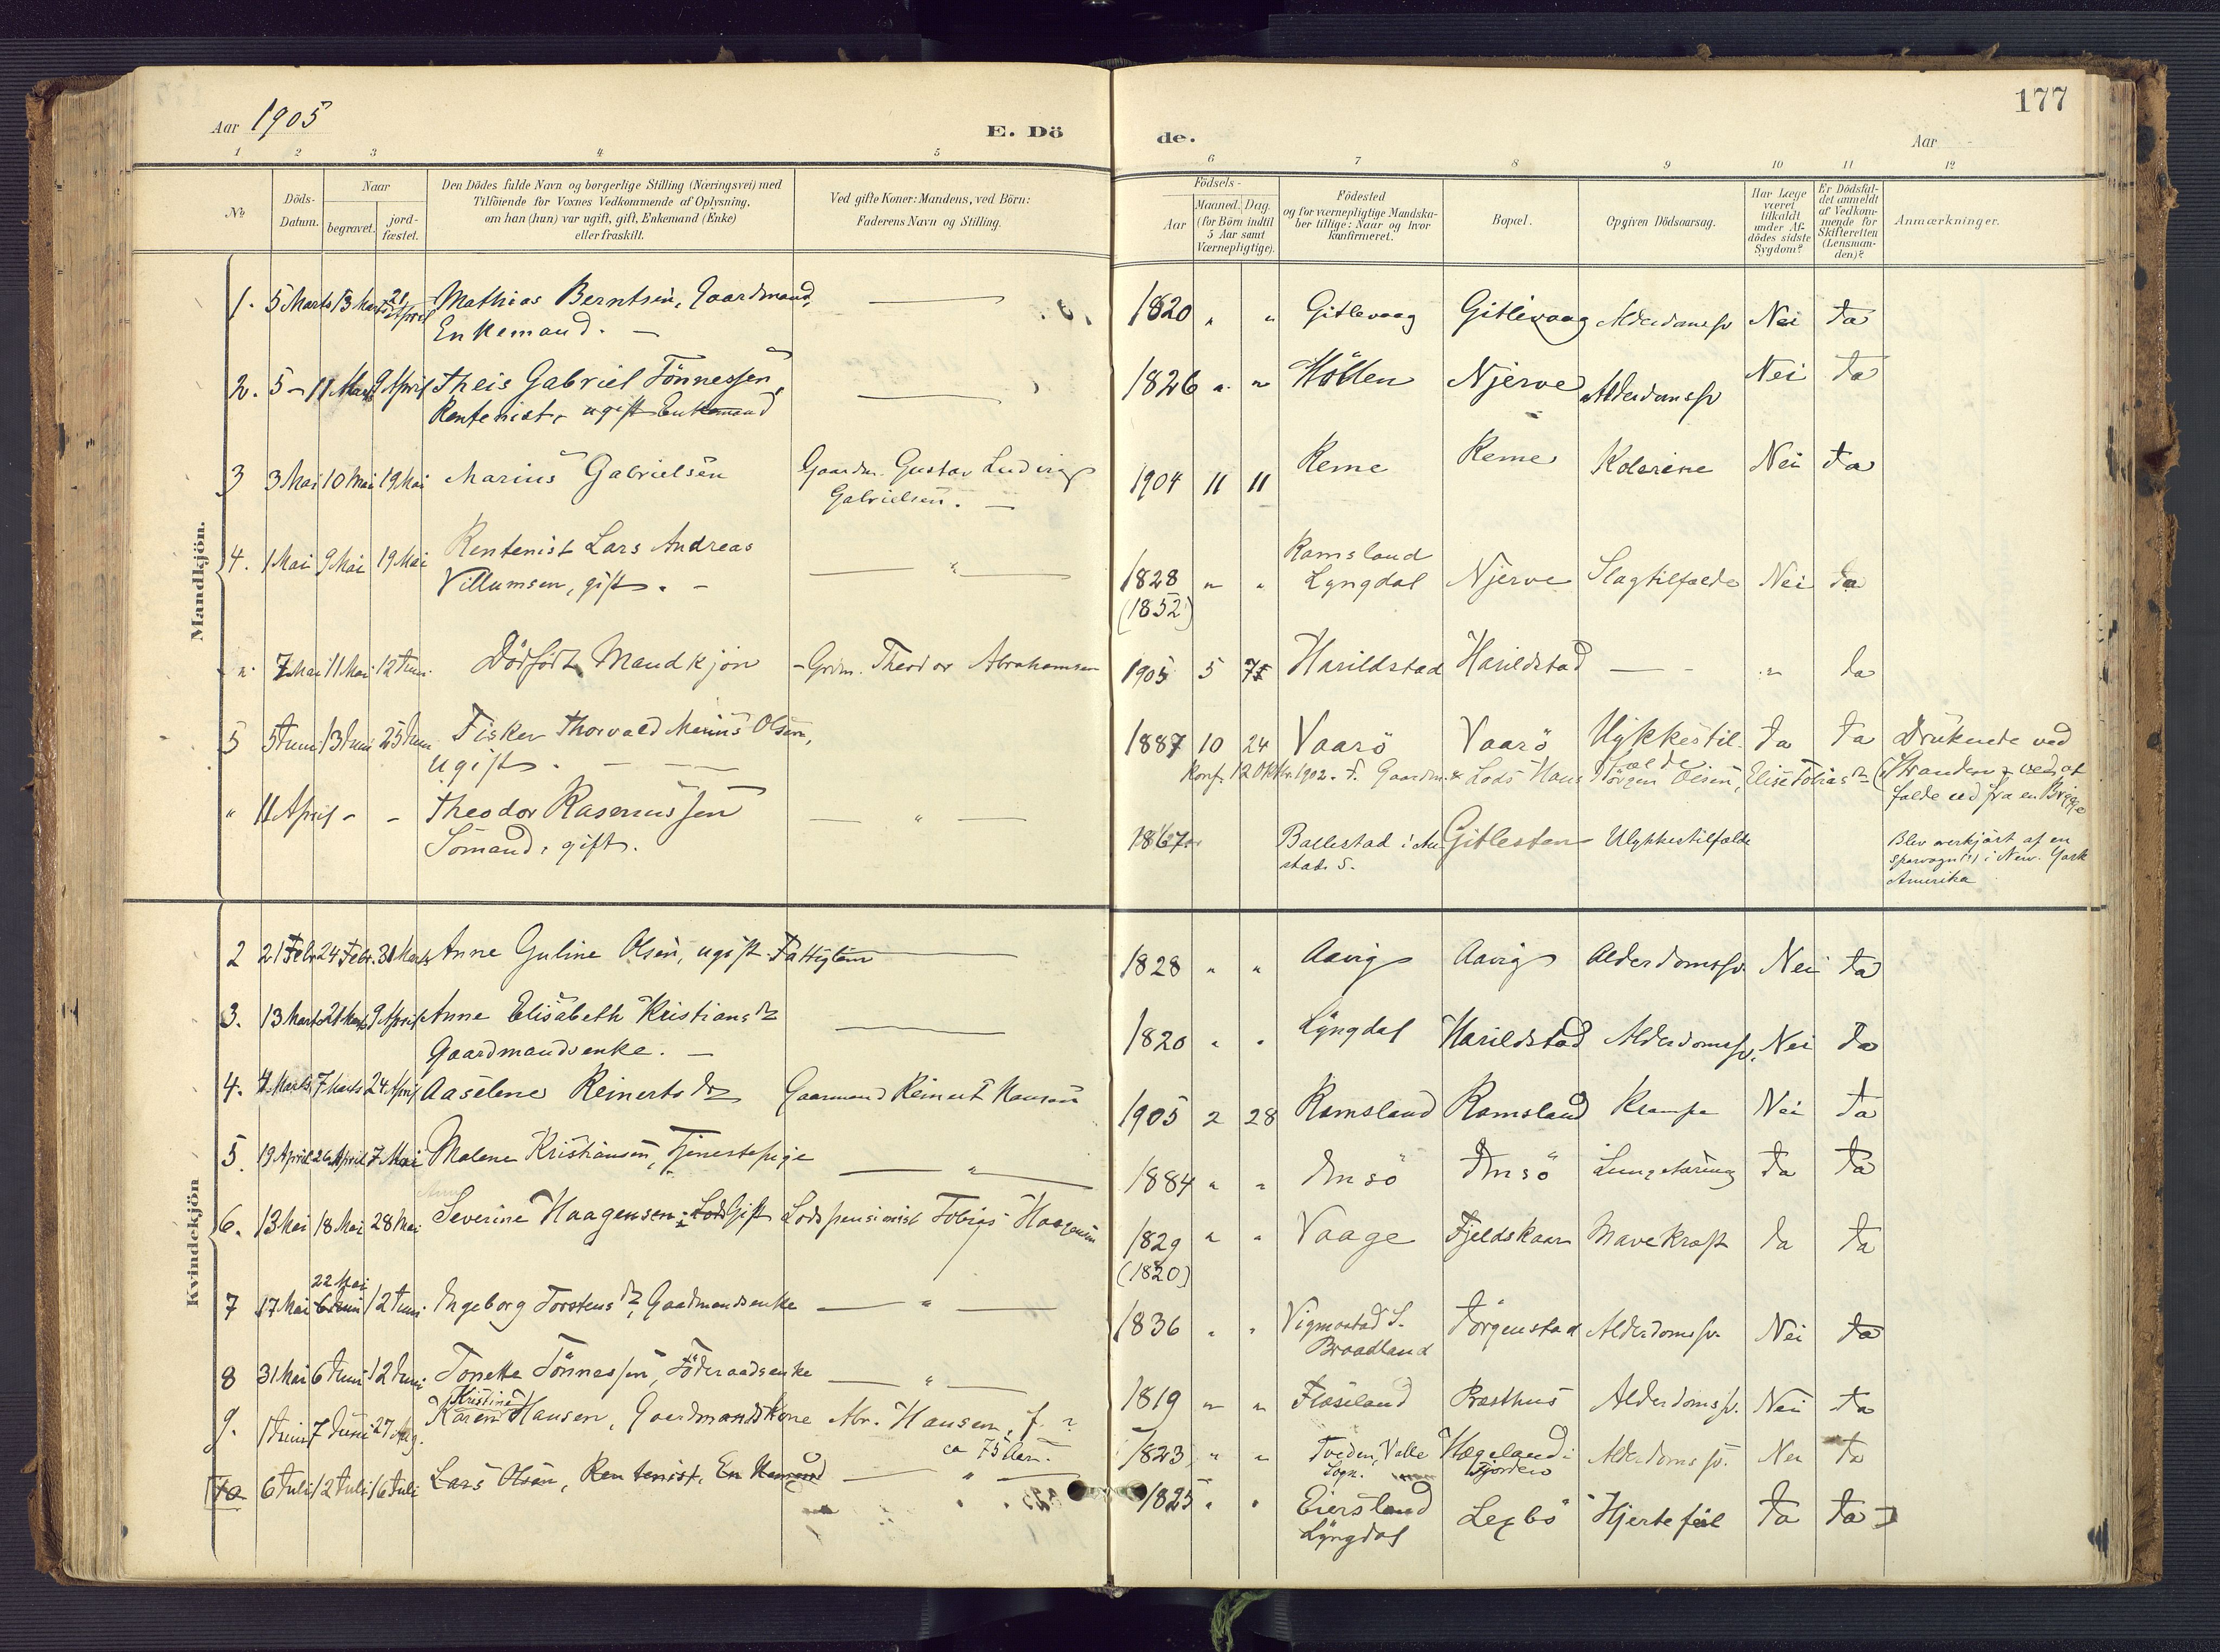 177
Aar 1905
E. Dö
de.
Aar
1 2 3 4 5 6 7 8 9 10 11 12
No
Döds-
Datum.
Naar
begravet.
jord-
fæstet.
Den Dödes fulde Navn og borgerlige Stilling (Næringsvei) med
Tilföiende for Voxnes Vedkommende af Oplysning,
om han (hun) var ugift, gift, Enkemand (Enke)
eller fraskilt.
Ved gifte Koner: Mandens, ved Börn:
Faderens Navn og Stilling.
Födsels-
Aar
Maaned. Dag.
(for Börn indtil
5 Aar samt
Værnepligtige).
Födested
og for værnepligtige Mandska-
ber tillige: Naar og hvor
konfirmeret.
Bopæl.
Opgiven Dödsaarsag.
Har Læge
været
tilkaldt
under Af-
dödes sidste
Sygdom?
Er Dödsfal-
det anmeldt
af Vedkom-
mende for
Skifteretten
(Lensman-
den)?
Anmærkninger.
Mandkjön.
1. 5 Marts 13 Marts 21 April Mathias Berntsen, Gaardmand, — 1820 " " Gitlevaag Gitlevaag Alderdomssv. Nei Ja
Enkemand. —
2. 5 – 11 Marts 9 April Theis Gabriel Tönnessen, — 1826 " " Hölten Njerve Alderdomssv Nei Ja
Rentenist, ugift Enkemand
3 3 Mai 10 Mai 19 Mai Marius Gabrielsen Gaardm. Gustav Ludvig 1904 11 11 Reme Reme Kolerine Nei Ja
Gabrielsen. —
4. 1 Mai 9 Mai 19 Mai Rentenist Lars Andreas — " — 1828 " " Ramsland
Villumsen, gift. – (1852) Lyngdal Njerve Slagtilfælde Nei Ja
". 7 Mai 11 Mai 12 Juni. Dödfödt Mandkjön – Grdm. Theodor Abrahamsen 1905 5 7 Harildstad Harildstad — " Ja
5 5 Juni 13 Juni 25 Juni Fisker Thorvald Marius Olsen, 1887 10 24 Vaarö Vaarö Ulykkestil- Ja Ja Druknede ved
ugift. — fælde
Konf. 12 Oktbr. 1902. F. Gaardm. & Lods Hans Jörgen Olsen, Elise Tobiasdr. Stranden ved at
falde ud fra en Brygge
" 11 April – – Theodor Rasmussen — " — 1867 Ballestad i Au- Gitlesten Ulykkestilfælde Blev overkjört af en
Sömand, gift. stads S. sporvogn (?) i New. York
Amerika
Kvindekjön
2 21 Febr 24 Febr. 30 Marts Anne Guline Olsen, ugift Fattiglem — 1828 " " Aavig Aavig Alderdomssv. Nei Ja
3. 13 Marts 21 Marts 9 April Anne Elisabeth Kristiansdr — 1820 " " Lyngdal Harildstad Alderdomssv. Nei Ja
Gaardmandsenke. —
4. 4 Marts 7 Marts 24 April Aaselene Reinertsdr Gaarmand Reinert Hansen 1905 2 28 Ramsland Ramsland Krampe Nei Ja
5. 19 April 26 April 7 Mai Malene Kristiansen, Tjenestepige — " — 1884 " " Imsö Imsö Lungetæring Ja Ja
6. 13 Mai 18 Mai 28 Mai Severine Haagensen, Lods Gift Lodspensionist Tobias Haagensen 1829 " " Vaage Fjeldskaar Mavekræft Ja Ja
(1820)
22 Mai
7 17 Mai 6 Juni 12 Juni. Ingeborg Torstensdr, Gaardmandsenke — " — 1836 " " Vigmostad S. Jörgenstad Alderdomssv. Nei Ja
Braadland
8 31 Mai 6 Juni 12 Juni. Tonette Tönnessen, Föderaadsenke — " — 1819 " " Flaseland Præsthus Alderdomssv. Nei Ja
Kristine
9. 1 Juni 7 Juni 27 Aug. Karen Hansen, Gaardmandskone Abr. Hansen, f. ? 1823 " " Tveden, Valle Hægeland i Alderdomssv. Nei Ja
ca 75 Aar. Sogn. Fjorden
10 6 Juli 12 Juli 16 Juli Lars Olsen, Rentenist, Enkemand — " — 1825 " " Eiersland Legbö Hjertefeil Ja Ja
Lyngdal